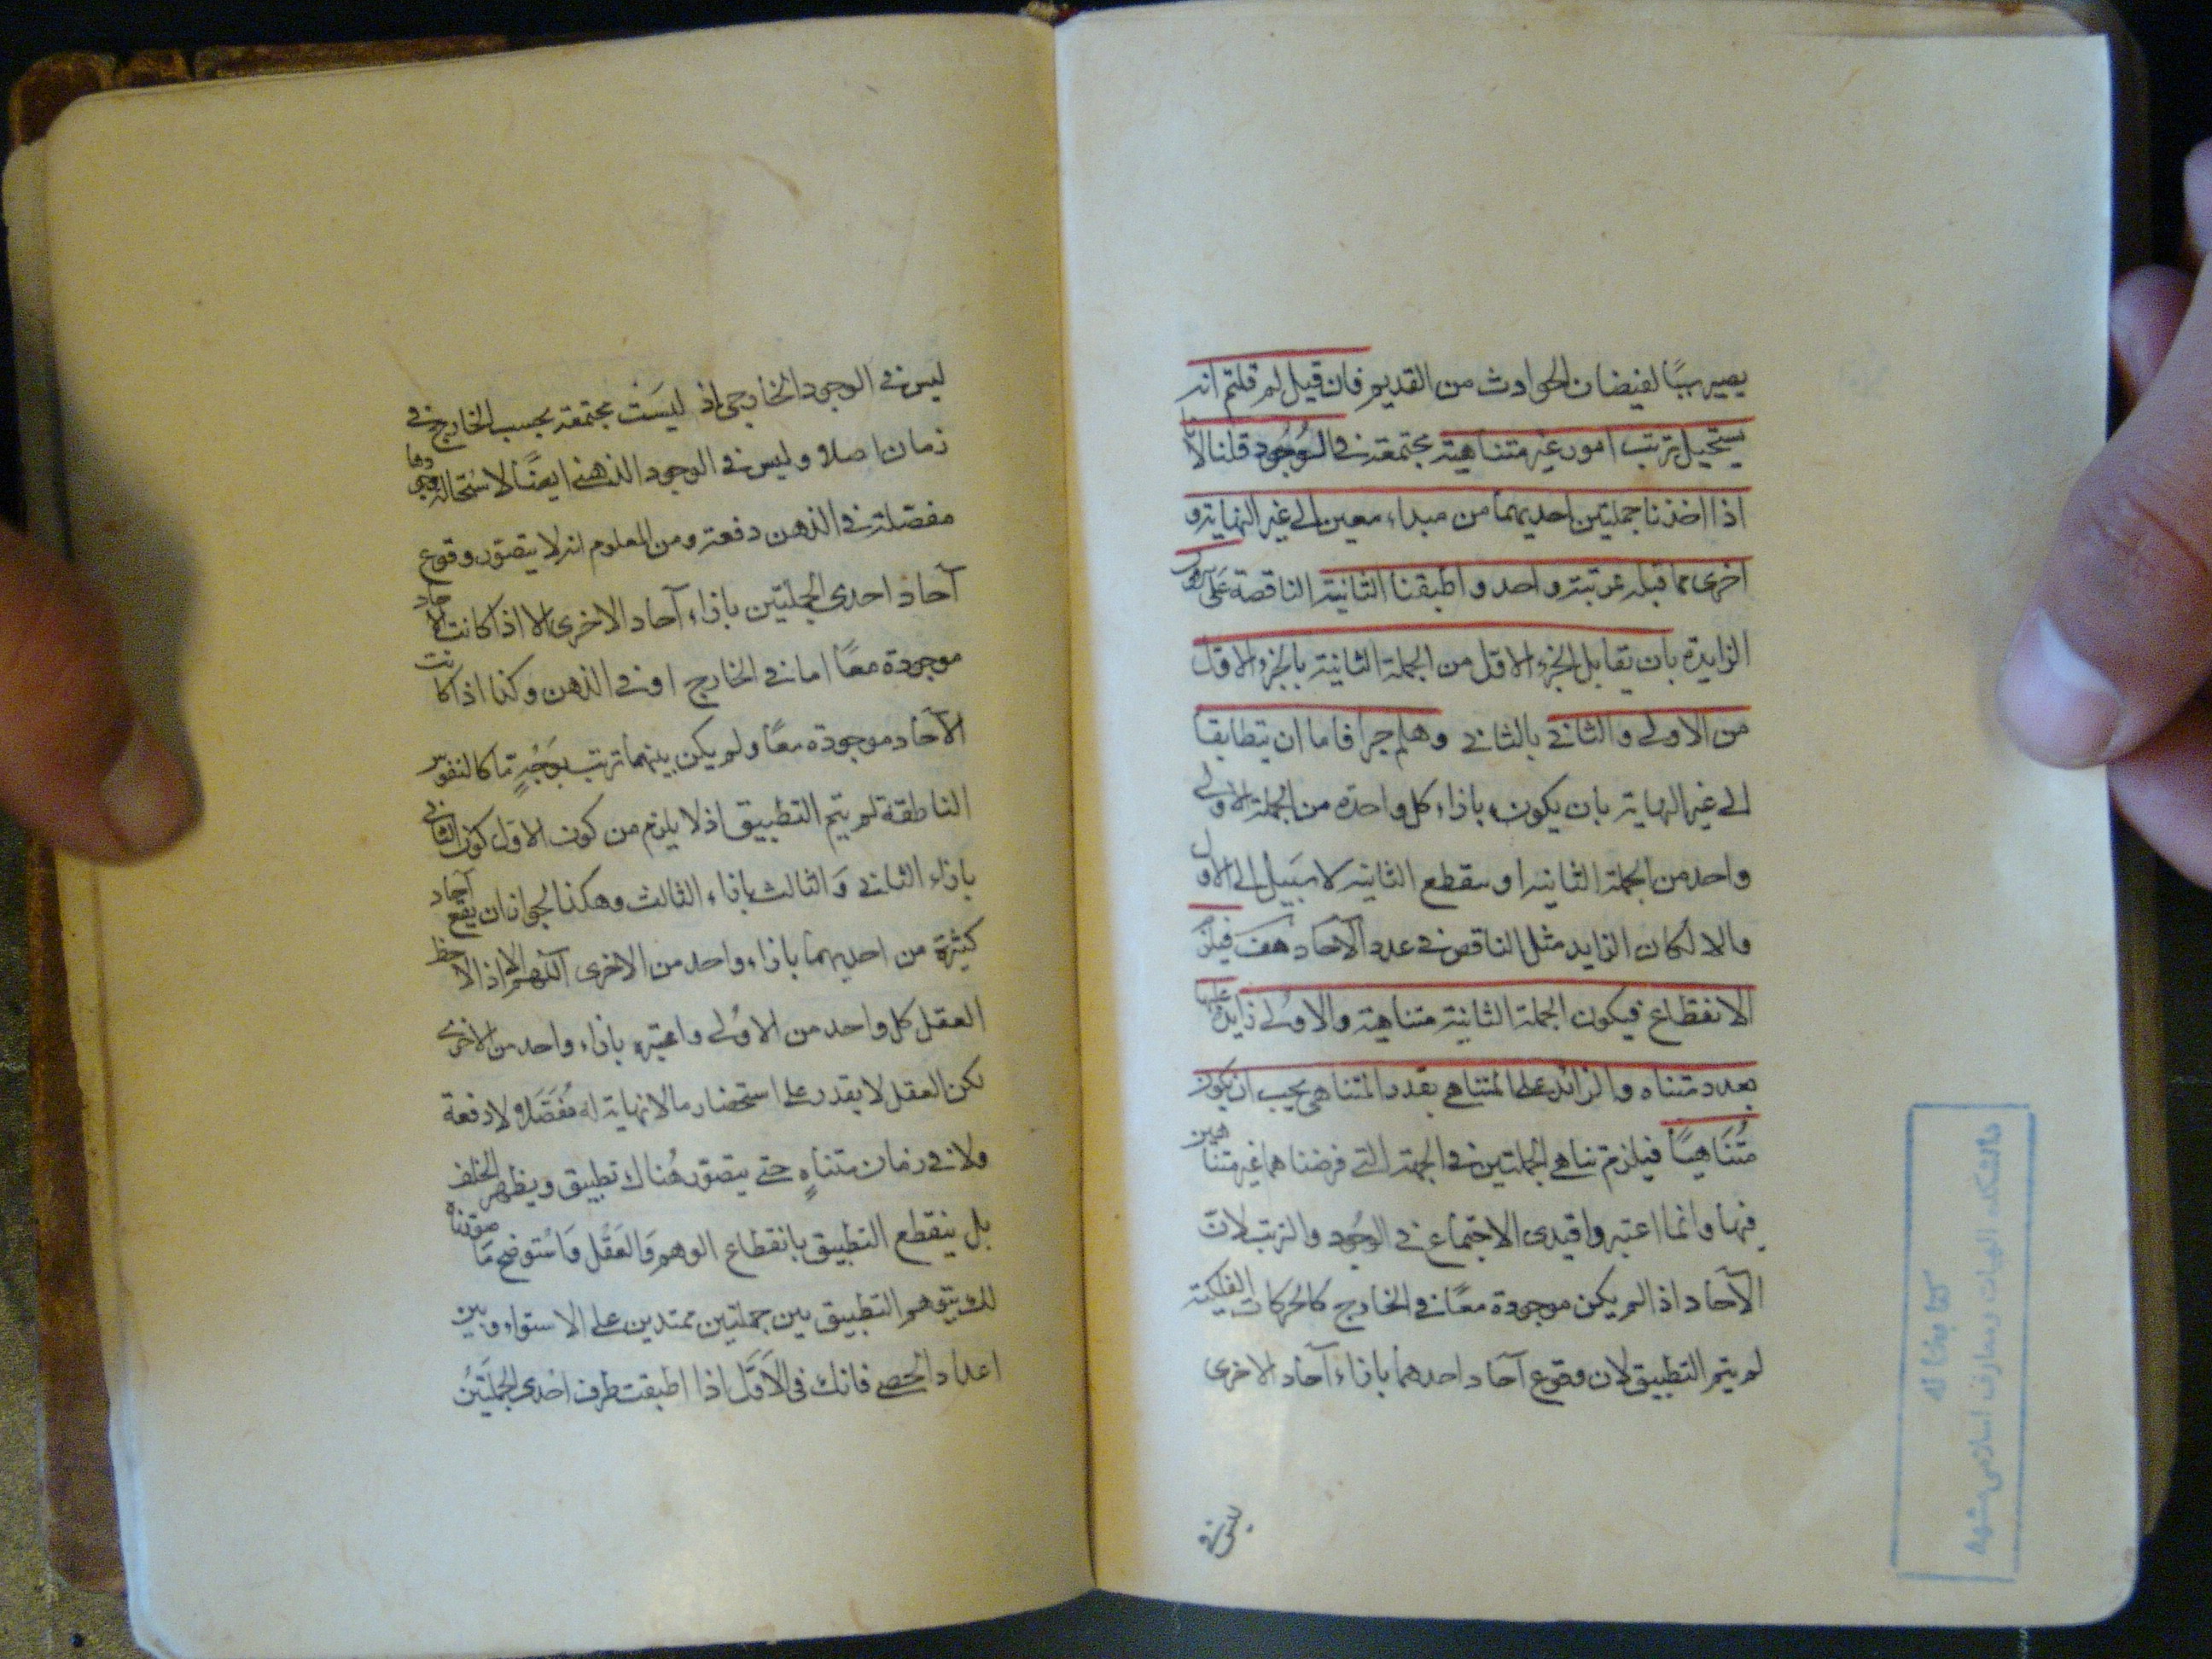 يصير سببًا لفيضان الحوادث من القديم فان قيل لم قلتم انه
يستحيل ترتب امور غير متناهية مجتمعة في الوُجُود قلنا لانّا
اذا اخذنا جملتين احديهما من مبداء معين الى غير النهاية و
اخرى مما قبله بمرتبة واحدة واطبقنا الثانية الناقصة على
الزايدة بان يقابل الجزء الاول من الجملة الثانية بالجزء الاول
من الاولى والثاني بالثاني وهلم جرا فاما ان يتطابقا
الى غير النهاية بان يكون بازاء كل واحدة من الجملة الاولى
واحد من الجملة الثانية او ينقطع الثانية لا سَبيل الى الاول
والا لكان الزايد مثل الناقص في عدد الآحَاد هف فيلزم
الانقطاع فيكون الجملة الثانية متناهية والاوُلى زايدة عليها
بعدد متناه والزائد على المتناهي بقدر المتناهي يجب ان يكون
مُتنَاهيًا فيلزم تناهي الجملتين في الجهة التي فرضناهما غير متناهيين
فيها وانما اعتبروا قيدى الاجتماع في الوجُود والترتب لان
الآحَاد اذا لم يكن موجودة معًا في الخارج كالحركات الفلكية
لم يتم التطبيق لان وقوع آحاد احدهما بازاء آحاد الاخرى
ليس في
ليس في الوجود الخارجي اذ ليسَتْ مجتمعة بحسب الخارج في
زمان اصلا وليس في الوجود الذهني ايضًا لاسْتحالة وجودها
مفصّلة في الذهن دفعة ومن المعلوم انه لا يتصوّر وقوع
آحاد احدى الجملتين بازاء آحاد الاخرى الا اذا كانت الآحاد
موجودة معًا اما في الخارج او في الذهن وكذا اذا كانت
الآحَاد موجودة معًا ولم يكن بينهما ترتب بوَجْهٍ ما كالنفوس
الناطقة لم يتم التطبيق اذ لا يلزم من كون الاول كون الثاني
بازاء الثاني وَالثالث بازاء الثالث وهكذا لجواز ان يقع آحاد
كثيرة من احديهما بازاء واحد من الاخرى اللهم الا اذا لاحظ
العقل كل واحد من الاوُلى واعتبره بازاء واحد من الاخرى
لكن العقل لا يقدر على استحضار ما لا نهاية له مُفصَّلا لا دفعة
ولا في زمان متناهٍ حتى يتصوّر هُناك تطبيق ويظهر الخلف
بل ينقطع التطبيق بانقطاع الوهم وَالعَقْل وَاسْتوضح مَا صوّرناه
لك بتوهم التطبيق بين جملتين ممتدين على الاستواء وبين
اعداد الحَصى فانك في الاَوّل اذا اطبقت طرف احْدى الجملتَيْن
كتابخانه
دانشكده الهيات ومعارف اسلامى مشهد